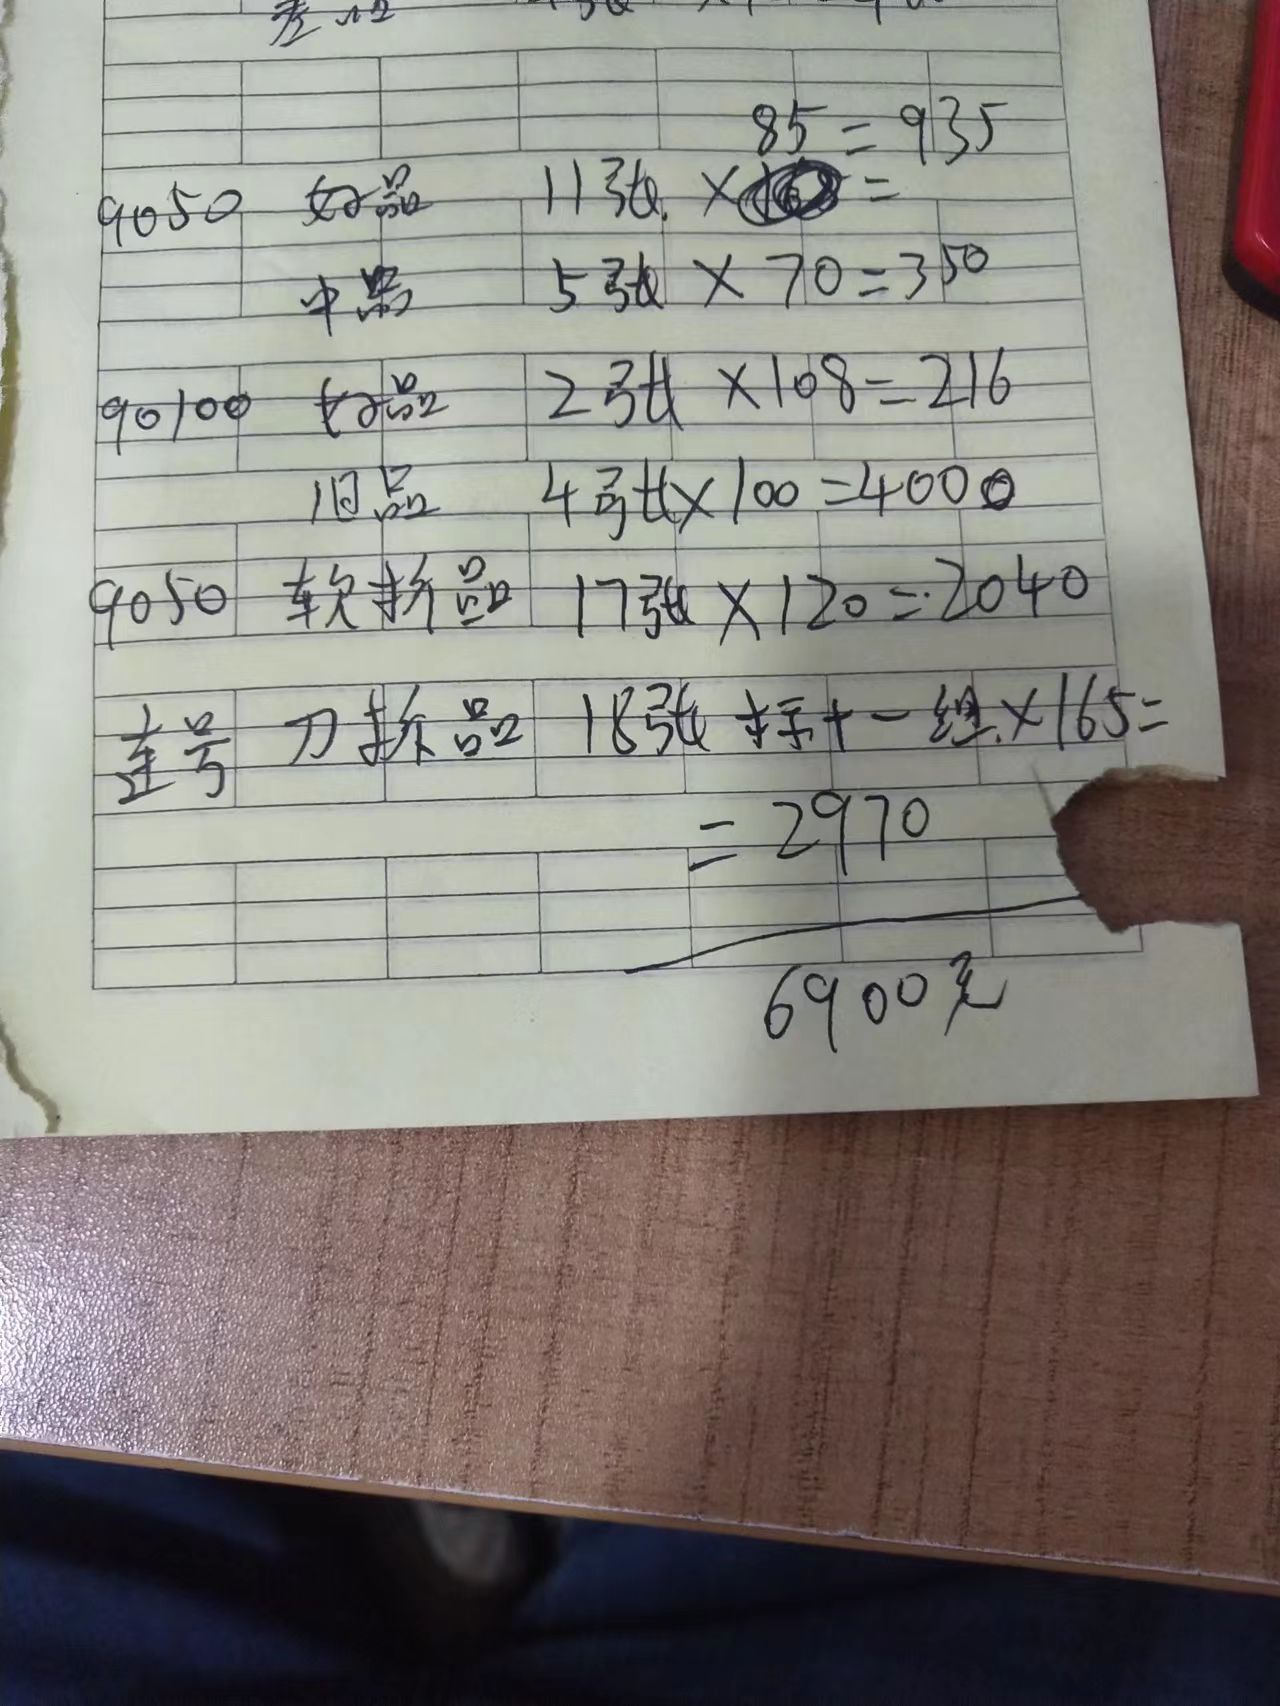 85=935
9050 好品 11张 ×=
中品 5张 ×70=350
90100 好品 2张 ×108=216
旧品 4张×100=4000
9050 软折品 17张 ×120=2040
连号 刀折品 18张 标十一组×165=
=2970
6900元